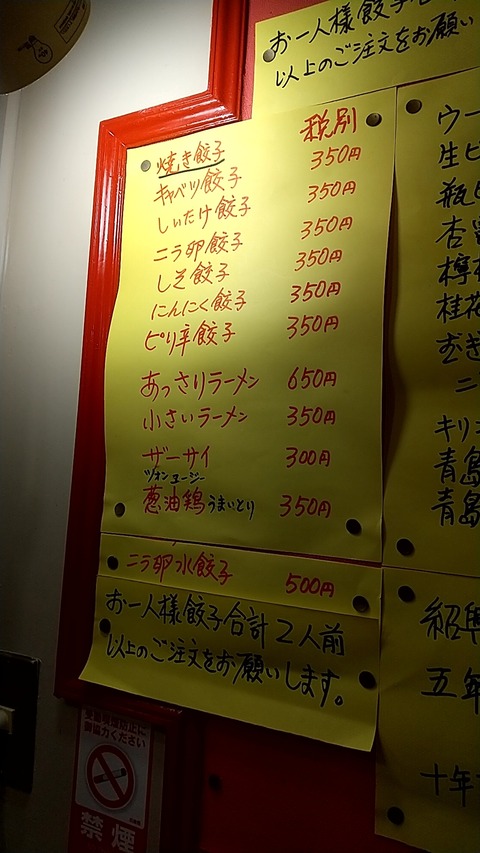 お一人様餃子
以上のご注文をお願い
税別
焼き餃子 350円
キャベツ餃子 350円
しいたけ餃子 350円
ニラ卵餃子 350円
しそ餃子 350円
にんにく餃子 350円
ピリ辛餃子
あっさりラーメン 650円
小さいラーメン 350円
ザーサイ 300円
ツォンユージー
葱油鶏 うまいとり 350円
ニラ卵水餃子 500円
お一人様餃子合計2人前
以上のご注文をお願いします。
ウー
生ビ
瓶ビ
杏
檸檬
桂花
むぎ
キリ
青島
青島
紹興
五年
十年
ご協力ください
禁煙